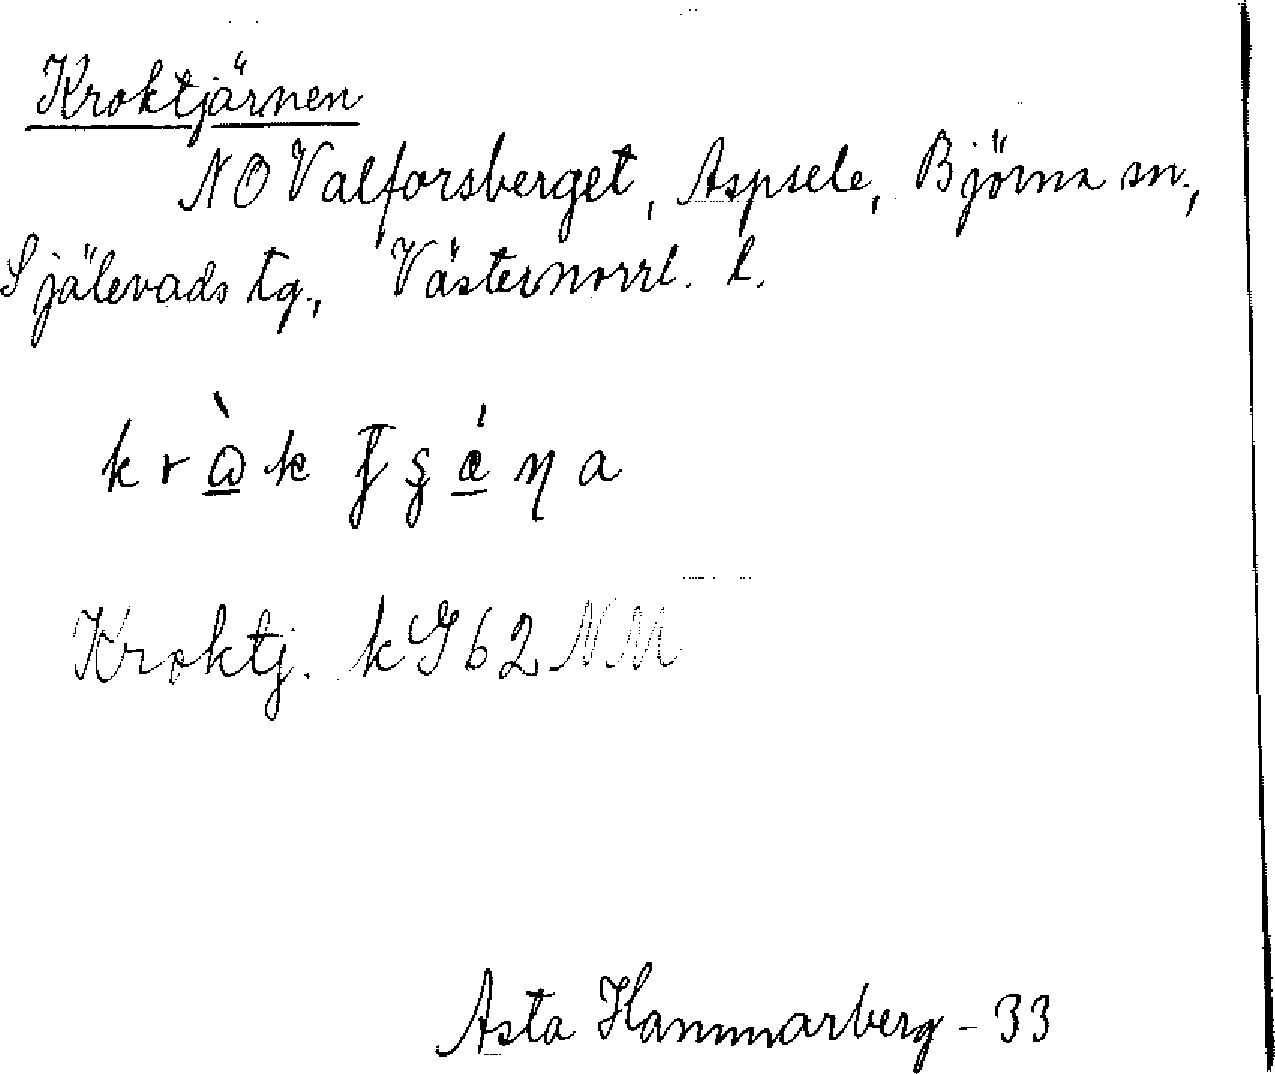 Kroktjärnen
NO Valforsberget, Aspsele, Björna sn.,
Själevads tg., Västernorrl. l.
Kroktj. kG62 NM
Asta Hammarberg - 33